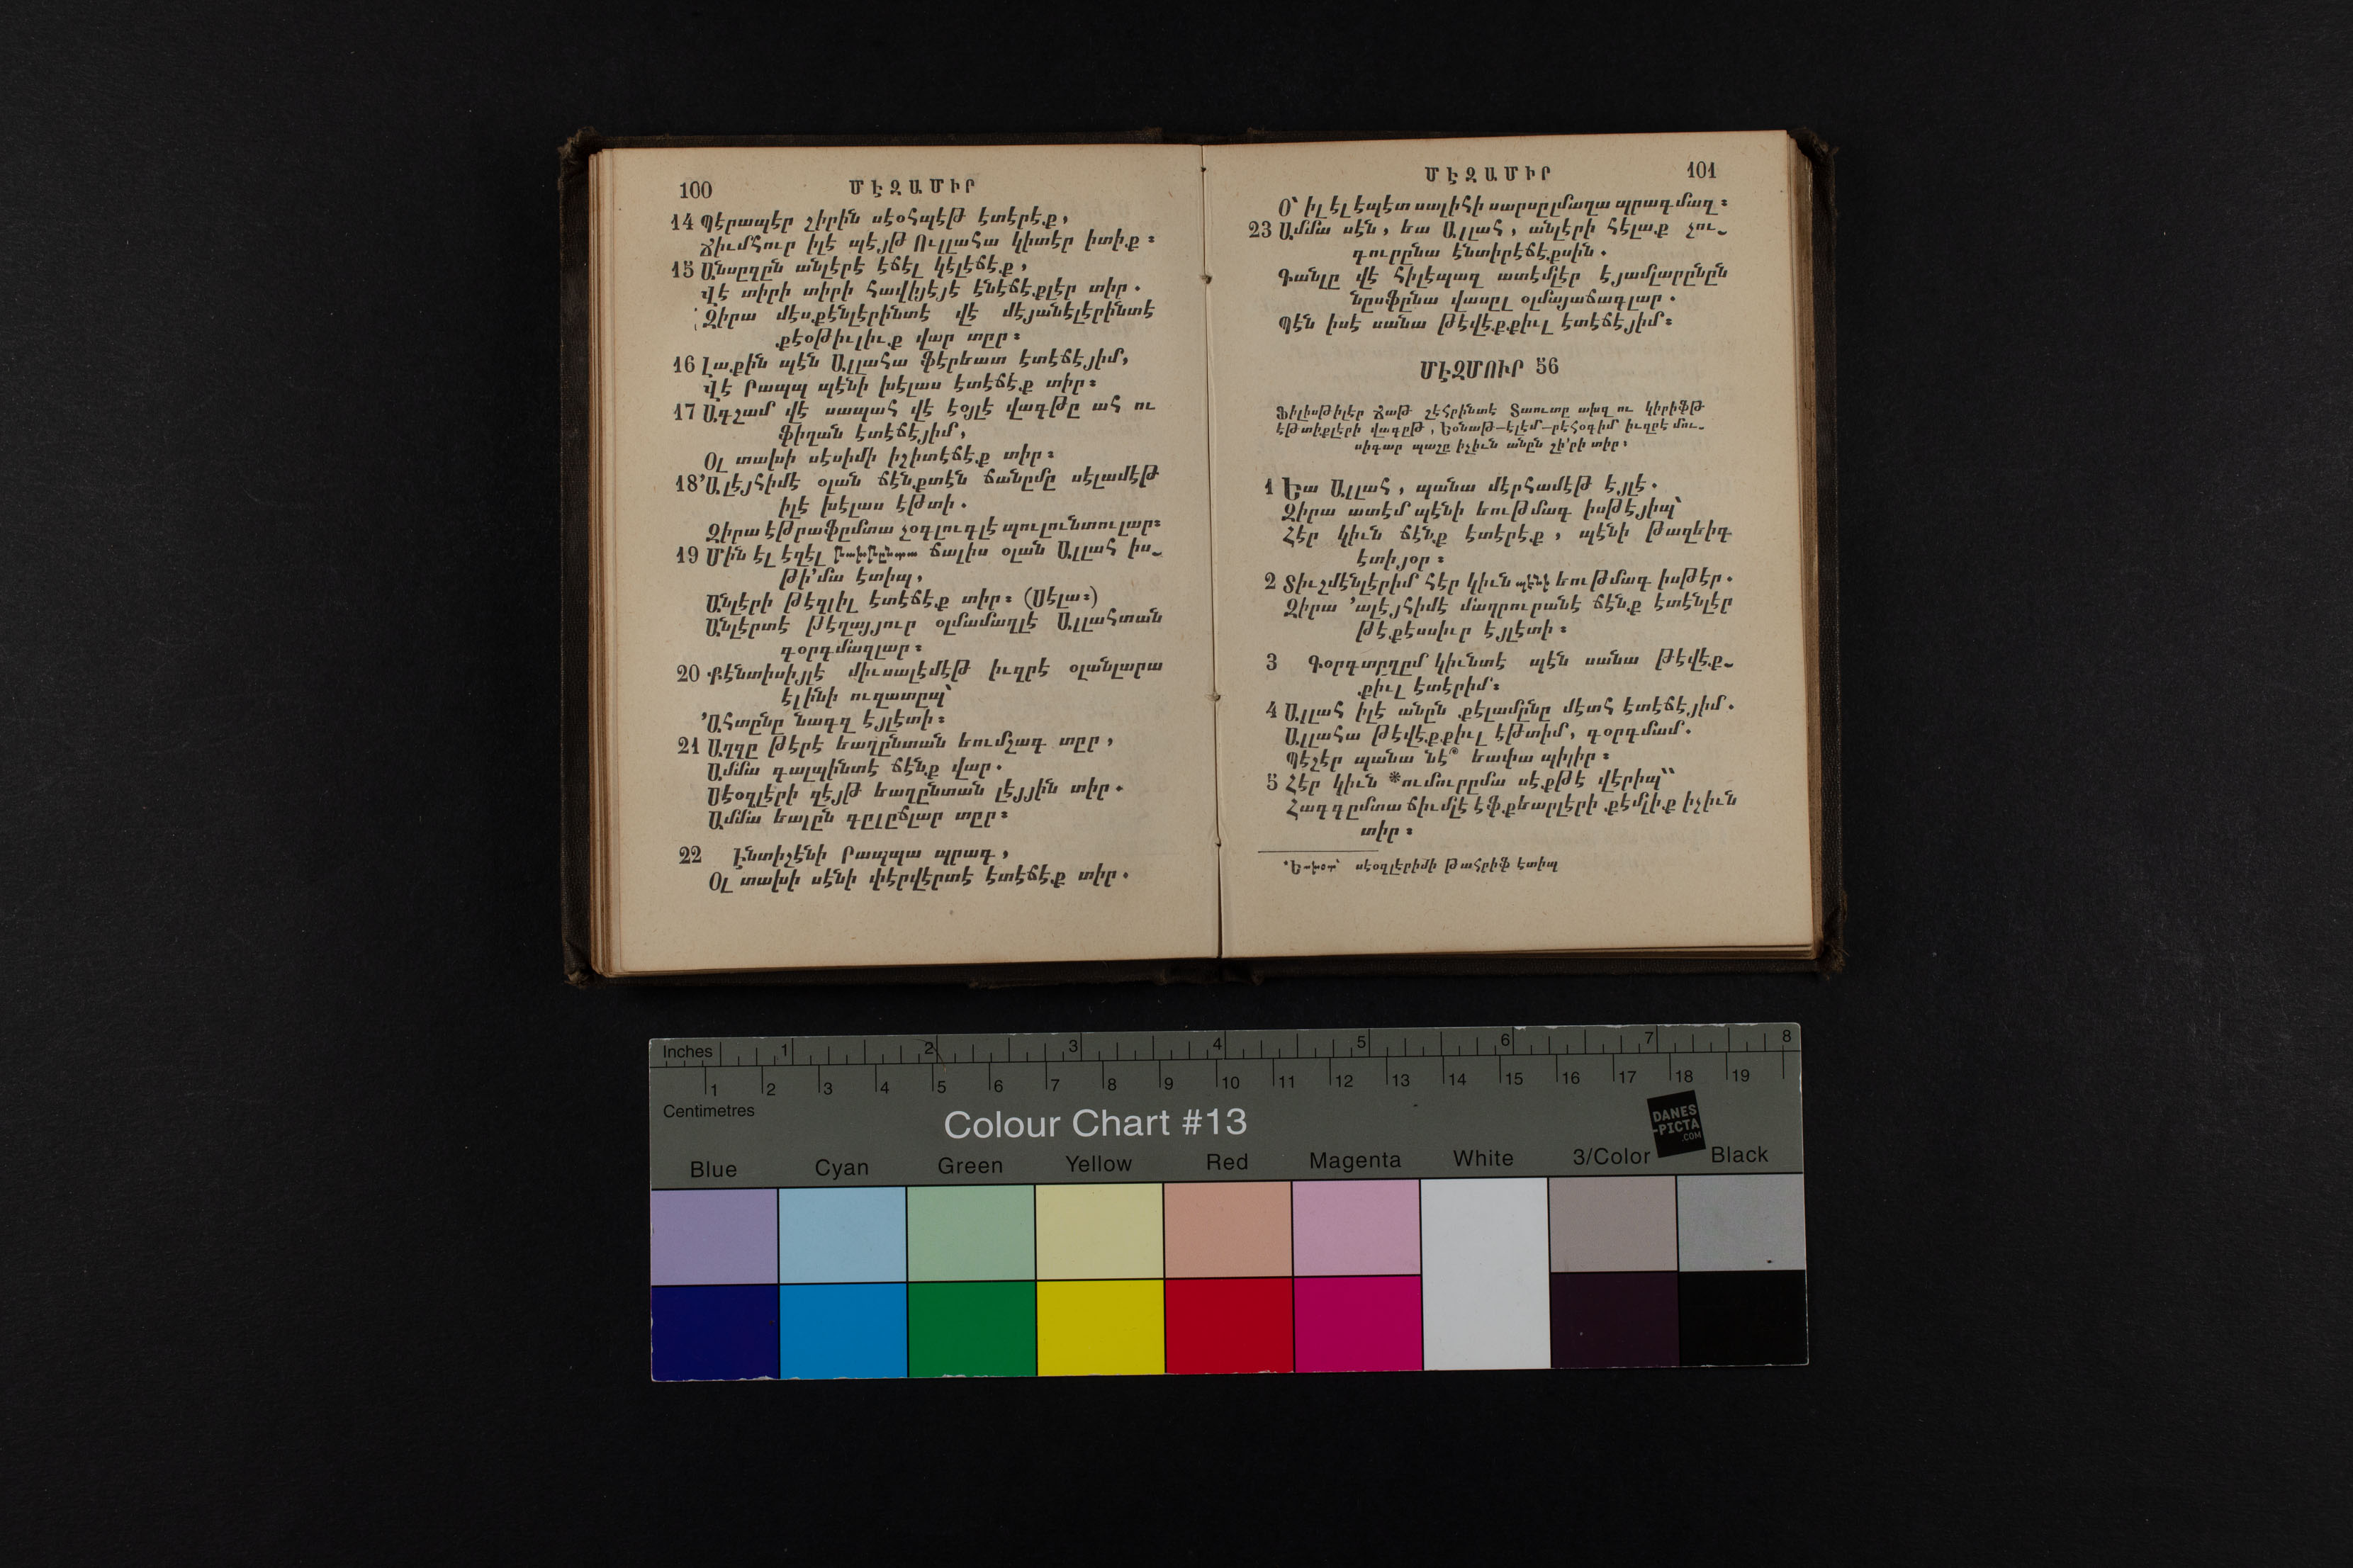 100 ՄԷԶԱՄԻՐ
14 Պէրապէր շիրին սէօհպէթ էտէրէք,
Ճիւմհուր իլէ պէյթ Ուլլահա կիտէր իտիք։
15 Անսըզըն անլէրէ էճէլ կէլէճէք,
Վէ տիրի տիրի հավիյէյէ էնէճէքլէր տիր.
Զիրա մէսքէնլէրինտէ վէ մէյանէլէրինտէ
քէօթիւլիւք վար տըր։
16 Լաքին պէն Ալլահա ֆէրեատ էտէճէյիմ,
Վէ Րապպ պէնի խէլաս էտէճէք տիր։
17 Ագշամ վէ սապահ վէ էօյլէ վագթը ահ ու
ֆիղան էտէճէյիմ,
Օլ տախի սէսիմի իշիտէճէք տիր։
18 ՚Ալէյհիմէ օլան ճէնքտէն ճանըմը սէլամէթ
իլէ խէլաս էթտի.
Զիրա էթրաֆըմտա չօգլուգլէ պուլունտուլար։
19 Մին էլ էզէլ թախթընտա ճալիս օլան Ալլահ իս-
թի՚մա էտիպ,
Անլէրի թէզլիլ էտէճէք տիր։ (Սէլա։)
Անլէրտէ թէղայյուր օլմամաղլէ Ալլահտան
գօրգմազլար։
20 Քէնտիսիյլէ միւսալէմէթ իւզրէ օլանլարա
էլինի ուզատըպ՝
՚Ահտընը նագզ էյլէտի։
21 Աղզը թէրէ եաղընտան եումշագ տըր,
Ամմա գալպինտէ ճէնք վար.
Սէօզլէրի զէյթ եաղընտան լէյյին տիր.
Ամմա եալըն գըլըճլար տըր։
22 Էնտիշէնի Րապպա պրագ,
Օլ տախի սէնի փէրվէրտէ էտէճէք տիր.
ՄԷԶԱՄԻՐ 101
Օ՝ իլ էլ էպէտ սալիհի սարսըլմաղա պրագմազ։
23 Ամմա սէն, եա Ալլահ, անլէրի հէլաք չու-
գուրընա էնտիրէճէքսին.
Գանլը վէ հիլէպազ ատէմլէր էյամլարընըն
նըսֆընա վասըլ օլմայաճագլար.
Պէն իսէ սանա թէվէքքիւլ էտէճէյիմ։
ՄԷԶՄՈՒՐ 56
Ֆիլիսթիլէր Ճաթ շէհրինտէ Տաուտը ախզ ու կիրիֆթ
էթտիքլէրի վագըթ, Եօնաթ-էլէմ-րէհօգիմ իւզրէ մու-
սիգար պաշը իչիւն անըն շի՚րի տիր։
1 Եա Ալլահ, պանա մէրհամէթ էյլէ.
Զիրա ատէմ պէնի եութմագ իսթէյիպ՝
Հէր կիւն ճէնք էտէրէք, պէնի թազեիգ
էտիյօր։
2 Տիւշմէնլէրիմ հէր կիւն պէնի եութմագ իսթէր.
Զիրա ՚ալէյհիմէ մաղրուրանէ ճէնք էտէնլէր
թէքէսսիւր էյլէտի։
3 Գօրգտըղըմ կիւնտէ պէն սանա թէվէք-
քիւլ էտէրիմ։
4 Ալլահ իլէ անըն քէլամընը մէտհ էտէճէյիմ.
Ալլահա թէվէքքիւլ էթտիմ, գօրգմամ.
Պէշէր պանա նէ՞ եափա պիլիր։
5 Հէր կիւն *ումուրըմա սէքթէ վէրիպ՝՝
Հագգըմտա ճիւմլէ էֆքեարլէրի քէմլիք իչիւն
տիր։
*Եախօտ՝ սէօզլէրիմի թահրիֆ էտիպ
Inches 1 2 3 4 5 6 7 8
1 2 3 4 5 6 7 8 9 10 11 12 13 14 15 16 17 18 19
Centimetres
Colour Chart #13
DANES
-PICTA
.COM
Blue Cyan Green Yellow Red Magenta White 3/Color Black